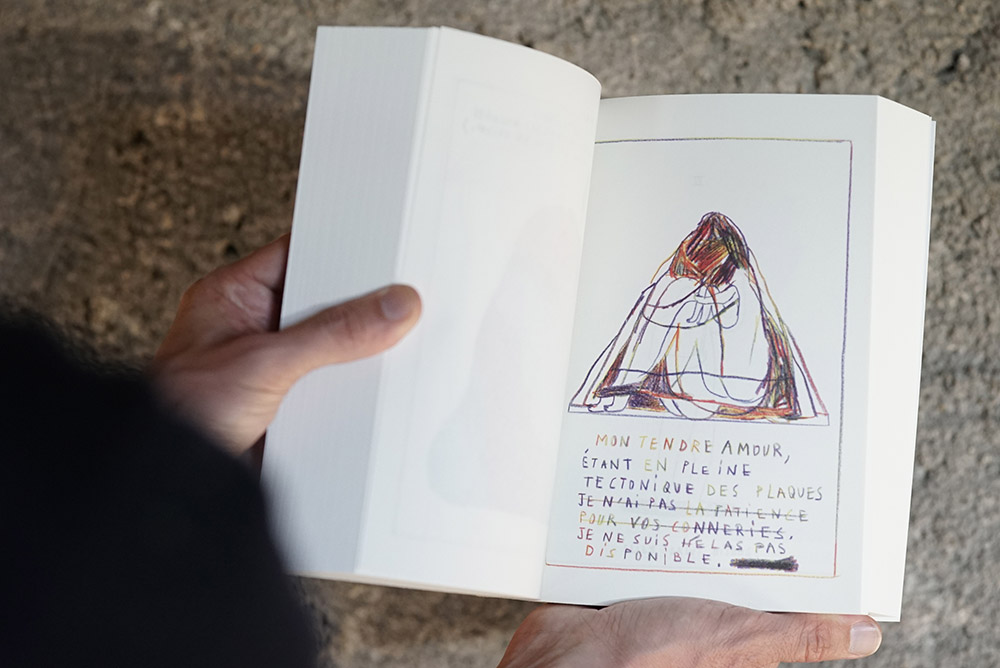 MON TENDRE AMOUR,
ÉTANT EN PLEINE
TECTONIQUE DES PLAQUES
JE N'AI PAS LA PATIENCE
POUR VOS CONNERIES.
JE NE SUIS HÉLAS PAS
DISPONIBLE.